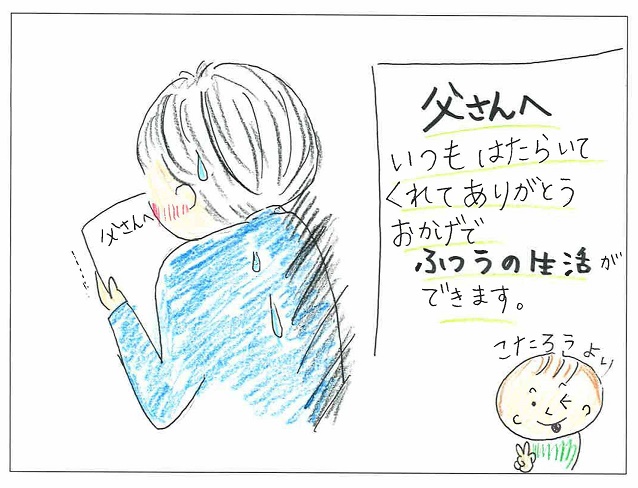 父さんへ
父さんへ
いつもはたらいて
くれてありがとう
おかげで
ふつうの生活が
できます。
こたろうより